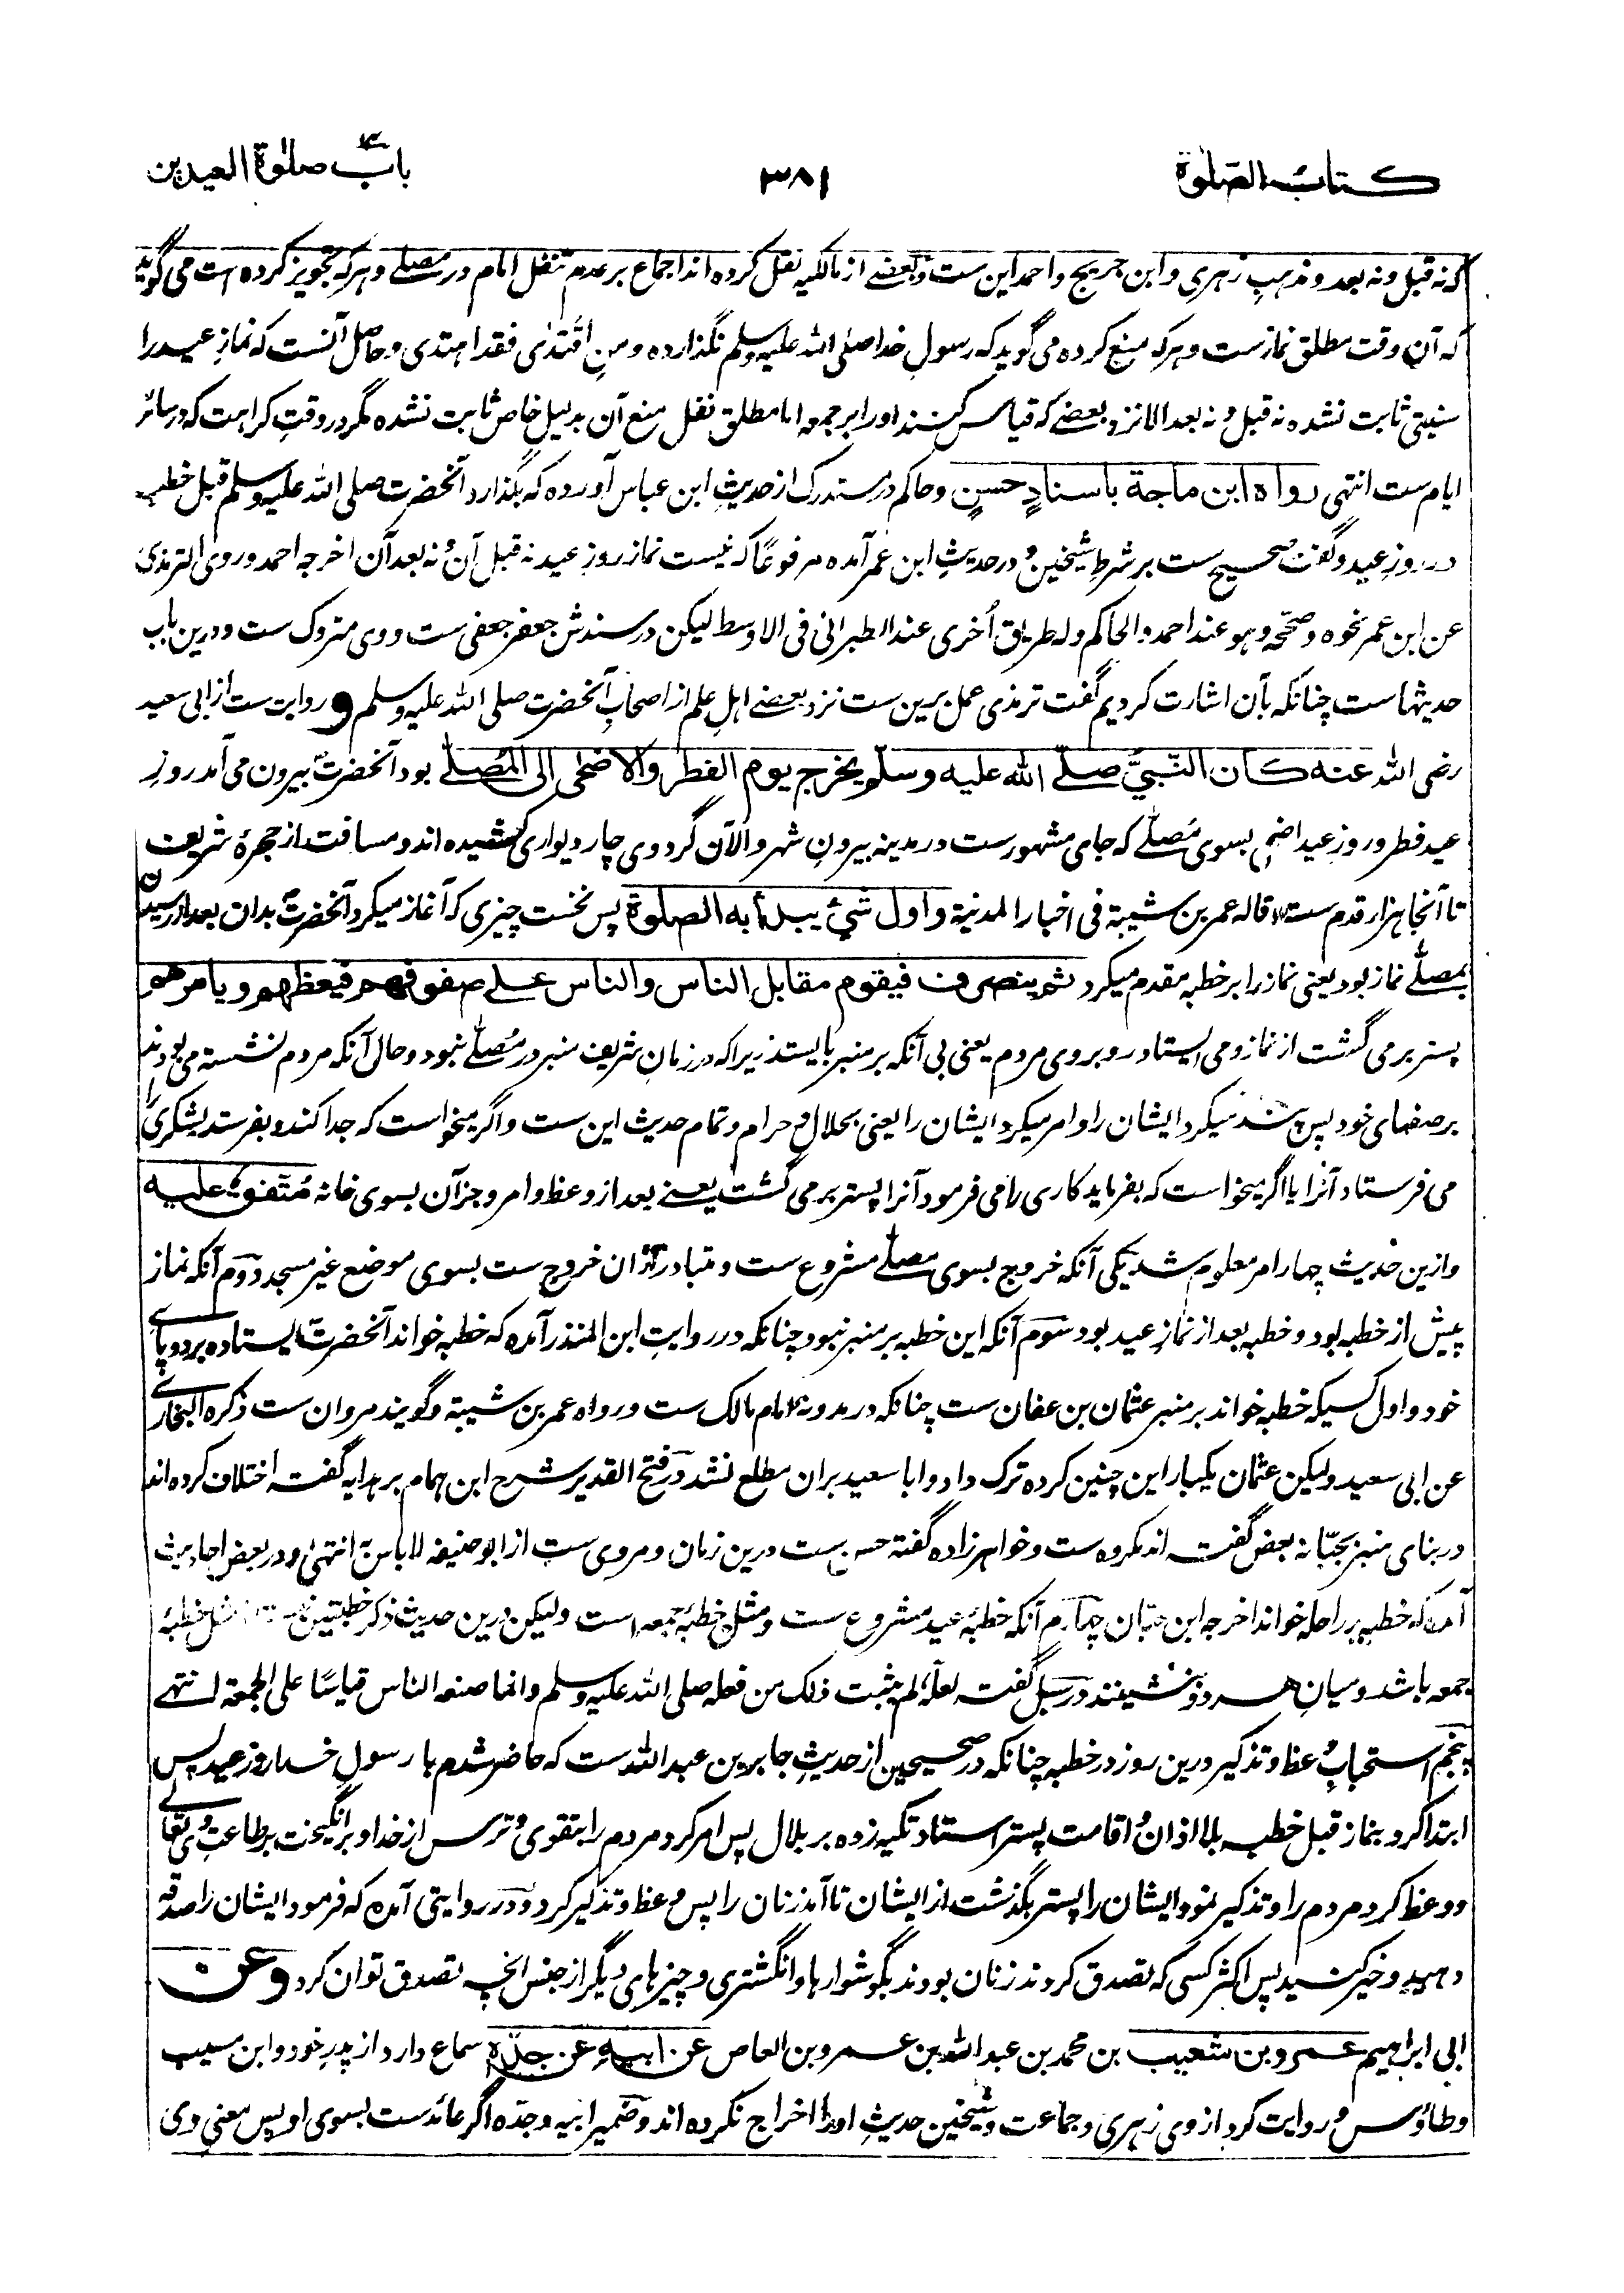 کتاب الصّلٰوة
۳۸۱
باب صلٰوة العیدین
که نه قبل ونه بعد ومذهب زهری وابن جریج واحمد این ست وبعضے از مالکیه نقل کرده اند اجماع بر عدم تنفل امام در مصلے وهرکه تجویز کرده است می گوید
که آن وقت مطلق نماز ست وهرکه منع کرده می گوید که رسول خدا صلی الله علیه وسلم نگذارده ومن اقتدٰی فقد اهتدی وحاصل آنست که نماز عید را
سنتی ثابت نشده نه قبل ونه بعد الا نزد بعضے که قیاس کنند او را بر جمعه اما مطلق نفل منع آن بدلیل خاص ثابت نشده مگر در وقت کراهت که در سائر
ایام ست انتهی رواه ابن ماجة باسنادٍ حسنٍ وحاکم در مستدرک از حدیث ابن عباس آورده که بگذارد آنحضرت صلی الله علیه وسلم قبل خطبه
در روز عید وگفت صحیح ست بر شرط شیخین ودر حدیث ابن عمر آمده مرفوعًا که نیست نماز روز عید نه قبل آن ونه بعد آن اخرجه احمد وروی الترمذی
عن ابن عمر نحوه وصححه وهو عند احمد والحاکم وله طریق اُخری عند الطبرانی فی الاوسط لیکن در سندش جعفر جعفی ست ووی متروک ست ودرین باب
حدیثهاست چنانکه بآن اشارت کردیم گفت ترمذی عمل برین ست نزد بعضے اهل علم از اصحاب آنحضرت صلی الله علیه وسلم و روایت ست از ابی سعید
رضی الله عنه کان النّبیُّ صلّی الله علیه وسلّم یخرج یوم الفطر والاضحٰی الی المُصلّٰے بود آنحضرت بیرون می آمد روز
عید فطر وروز عید اضحٰی بسوی مُصلّٰے که جای مشهور ست در مدینه بیرون شهر والآن گرد وی چار دیواری کشیده اند ومسافت از حجرهٔ شریف
تا آنجا هزار قدم ست قاله عمر بن شیبة فی اخبار المدنیة واول شیٔ یبدأ به الصلوة پس نخست چیزی که آغاز میکرد آنحضرت بدان بعد از رسیدن
بمصلّٰے نماز بود یعنی نماز را بر خطبه مقدم میکرد ثم ینصرف فیقوم مقابل الناس والناس علے صفوفهم فیعظهم ویامرهم
پستر بر می گشت از نماز ومی ایستاد روبروی مردم یعنی بی آنکه بر منبر بایستد زیرا که در زمان شریف منبر در مُصلّٰے نبود وحال آنکه مردم نشسته می بودند
بر صفهای خود پس پند میکرد ایشان را وامر میکرد ایشان را یعنی بحلال وحرام وتمام حدیث این ست واگر میخواست که جدا کند وبفرستد لشکری را
می فرستاد آنرا یا اگر میخواست که بفرماید کاری را می فرمود آنرا پستر بر می گشت یعنے بعد از وعظ وامر وجز آن بسوی خانه مُتّفقٌ علیه
وازین حدیث چهار امر معلوم شد یکی آنکه خروج بسوی مصلّٰے مشروع ست ومتبادر ازان خروج ست بسوی موضع غیر مسجد دوم آنکه نماز
پیش از خطبه بود وخطبه بعد از نماز عید بود سوم آنکه این خطبه بر منبر نبود چنانکه در روایت ابن المنذر آمده که خطبه خواند آنحضرت ایستاده بر دو پاے
خود واول کسیکه خطبه خواند بر منبر عثمان بن عفان ست چنانکه در مدونه امام مالک ست ورواه عمر بن شیبة وگویند مروان ست ذکره البخارے
عن ابی سعید ولیکن عثمان یکبار این چنین کرده ترک داد وابا سعید بران مطلع نشد در فتح القدیر شرح ابن همام بر هدایه گفته اختلاف کرده اند
در بنای منبر بجبّانه بعض گفته اند مکروه ست وخواهر زاده گفته حسن ست درین زمان ومروی ست از ابو حنیفه لا باس به انتهٰی ودر بعض احادیث
آمده که خطبه بر راحله خواند اخرجه ابن حبّان چهارم آنکه خطبهٔ عید مشروع ست ومثل خطبهٔ جمعه است ولیکن درین حدیث ذکر خطبتین نیست مثل خطبهٔ
جمعه باشد ومیان هر دو بنشینند در سبل گفته لعلّه لم یثبت ذلک من فعله صلی الله علیه وسلم وانما صنعه الناس قیاسًا علی الجمعة انتهے
پنجم استحباب وعظ وتذکیر درین روز در خطبه چنانکه در صحیحین از حدیث جابر بن عبد الله ست که حاضر شدم با رسول خدا روز عید پس
ابتدا کرد بنماز قبل خطبه بلا اذان واقامت پستر استاد تکیه زده بر بلال پس امر کرد مردم را بتقوی وترس از خدا وبرانگیخت بر طاعت وی تعالٰے
ووعظ کرد مردم را وتذکیر نمود ایشان را پستر بگذشت از ایشان تا آمد زنان را پس وعظ وتذکیر کرد ودر روایتی آمده که فرمود ایشان را صدقه
دهید وخیر کنید پس اکثر کسی که تصدق کردند زنان بودند بگوشوارها وانگشتری وچیزهای دیگر از جنس آنچه تصدق توان کرد وعن
ابی ابراهیم عمرو بن شعیب بن محمد بن عبد الله بن عمرو بن العاص عن ابیهِ عن جدّه سماع دارد از پدر خود وابن مسیب
وطاؤس وروایت کرد از وی زهری وجماعت وشیخین حدیث او را اخراج نکرده اند وضمیر ابیه وجدّه اگر عائد ست بسوی او پس معنی وی